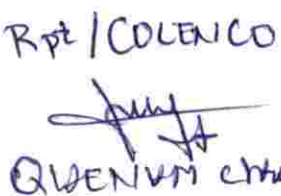 Rpt/COLENCO
QUENUM